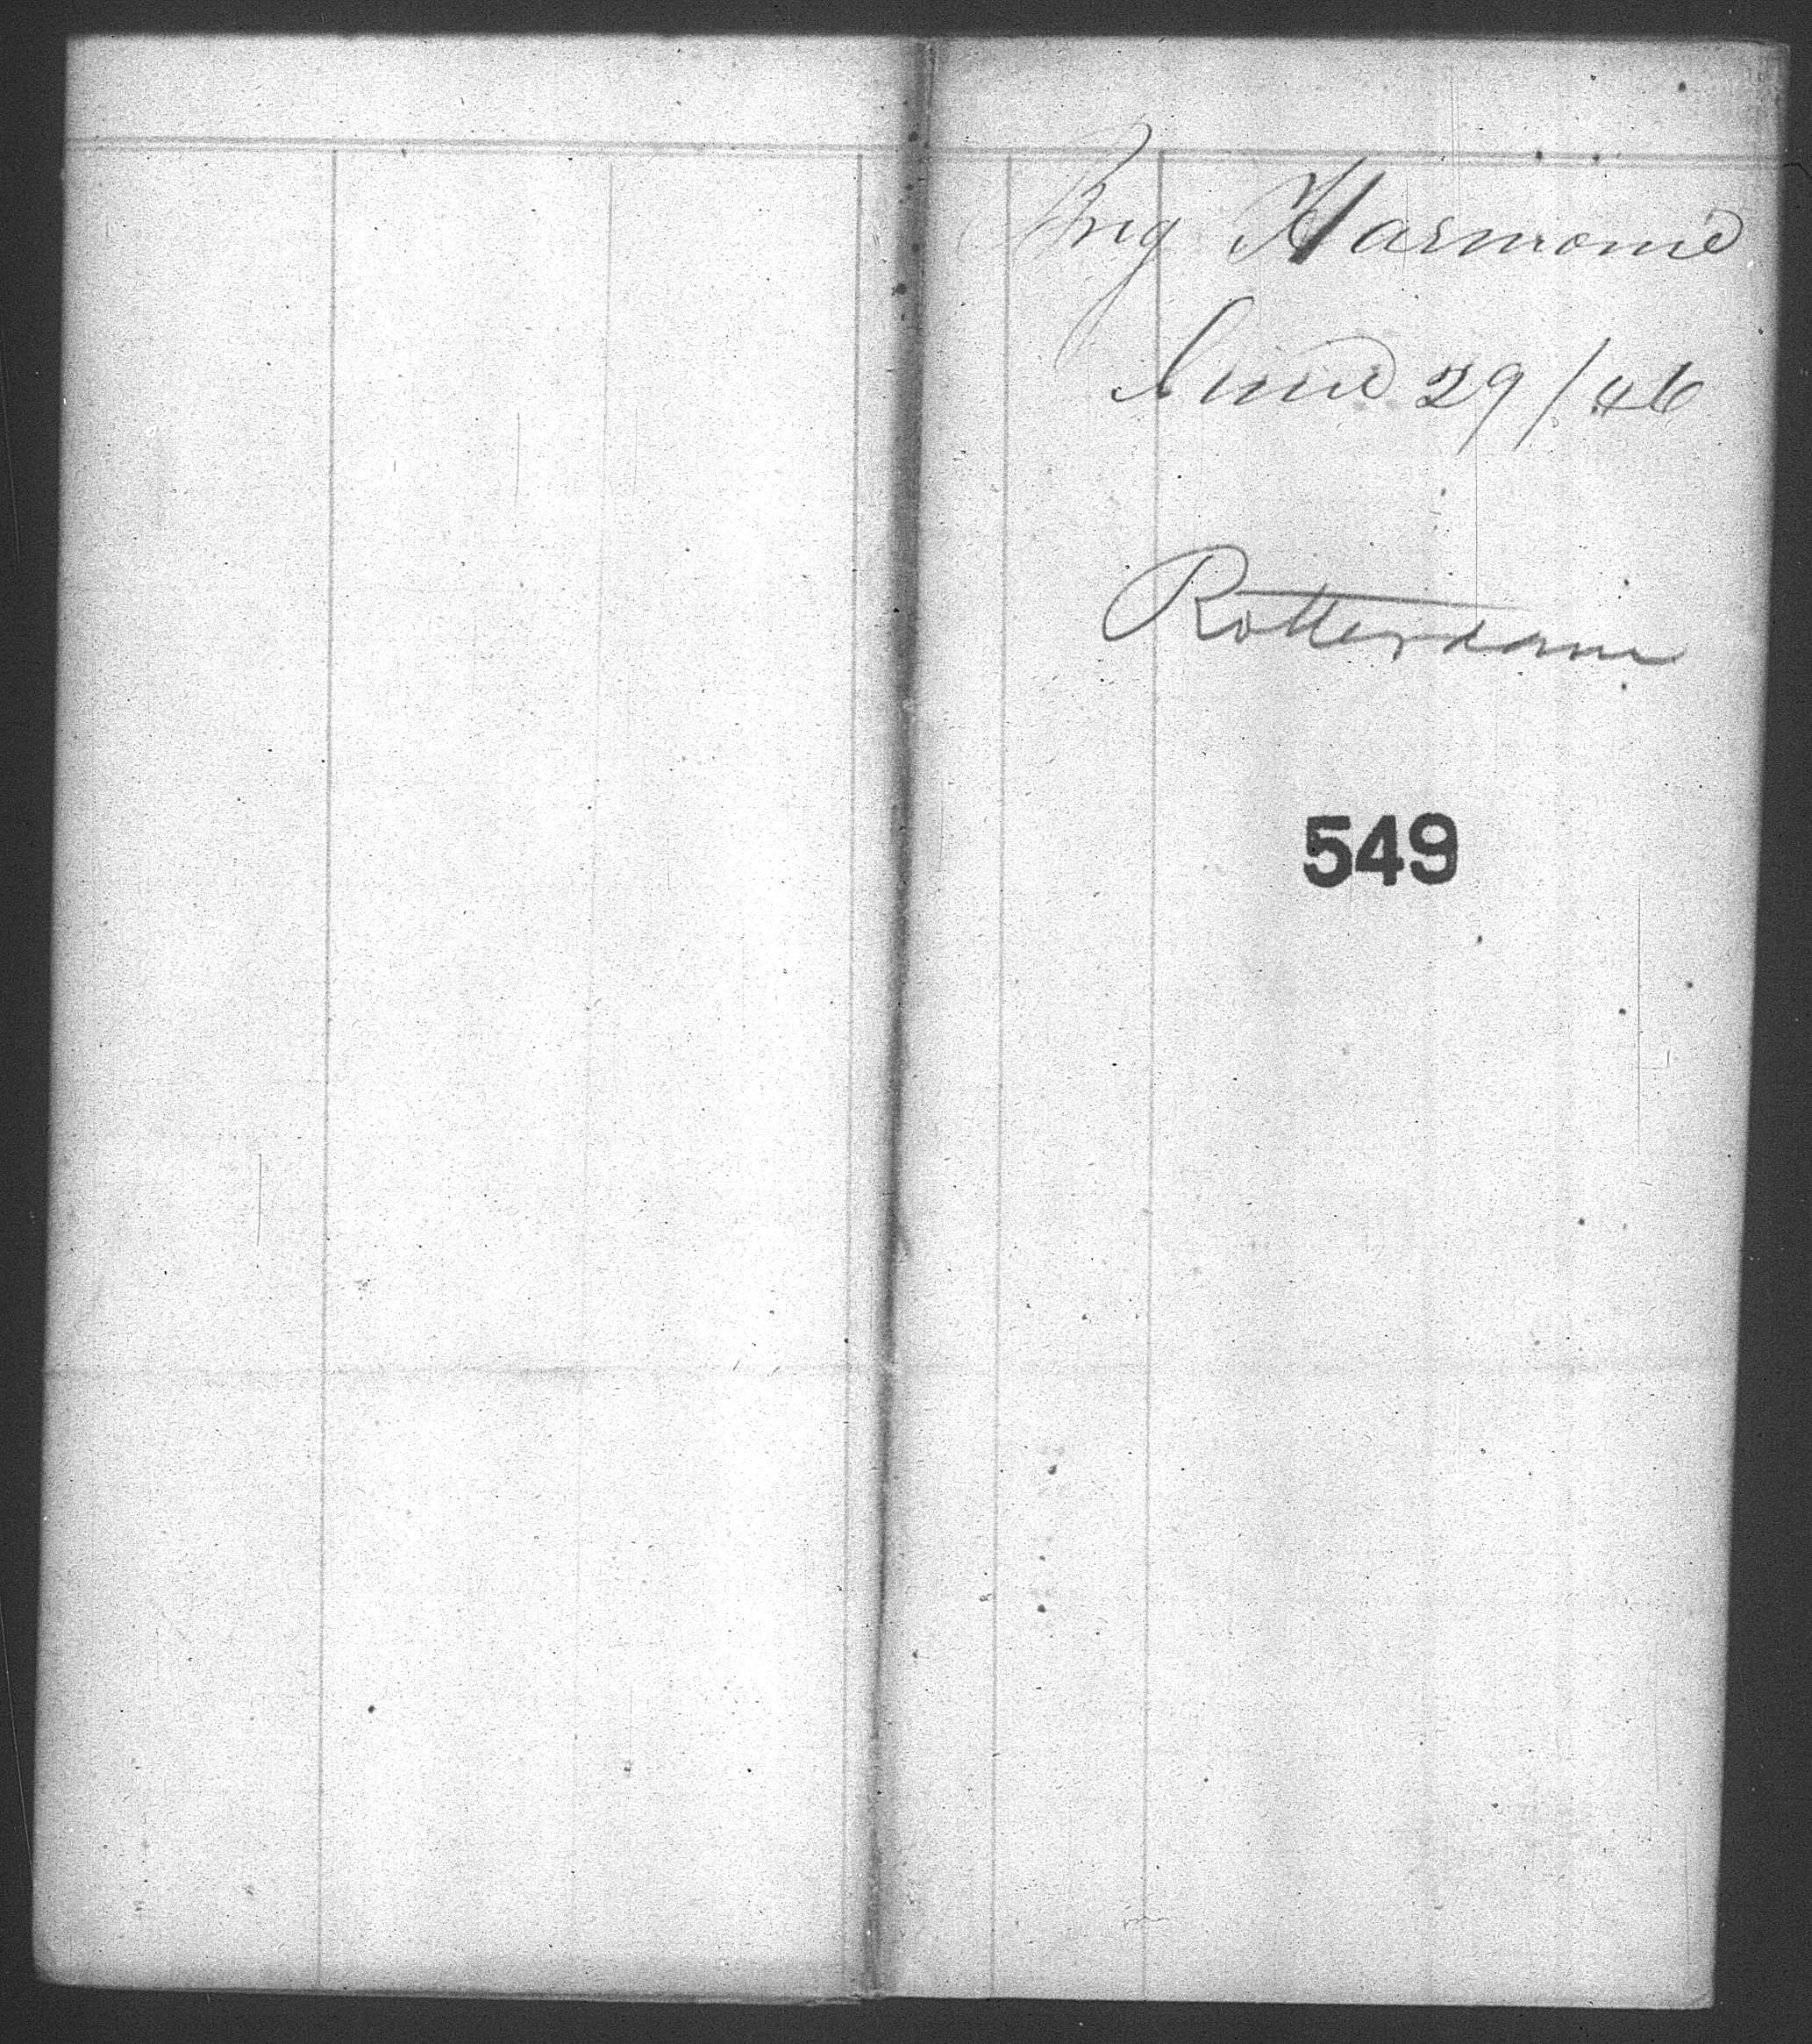 Brig Harmonie
June 29/46
Rotterdam
549